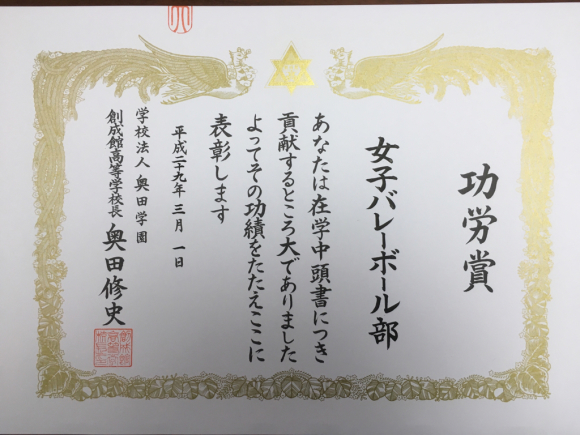 功労賞
女子バレーボール部
あなたは在学中頭書につき
貢献するところ大でありました
よってその功績をたたえここに
表彰します
平成二十九年三月一日
学校法人奥田学園
創成館高等学校長 奥田修史